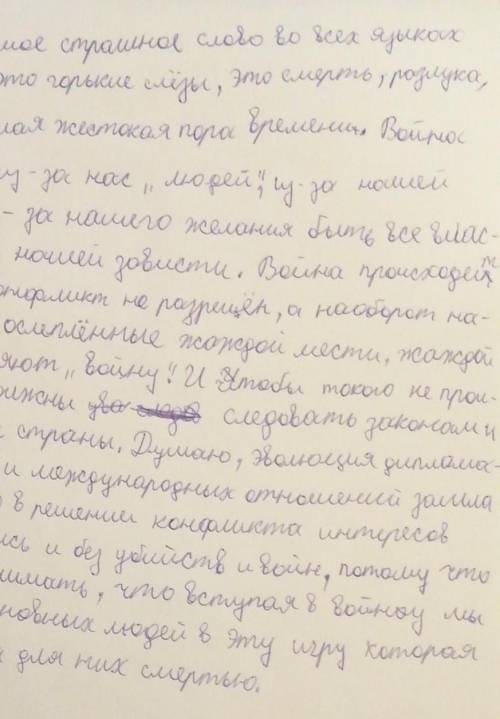 мое страшное слово во всех языках
это горькие слёзы, это смерть, разлука,
лая жестокая пора времени. Война
из-за нас „людей“, из-за нашей
- за нашего желания быть все влас-
нашей зависти. Война происходеит
онфликт не разрешён, а наоборот на-
ослеплённые жаждой мести, жаждой
яют „войну“. И чтобы такого не прои-
лжны следовать законам и
страны. Думаю, эволюция диплома-
и международных отношений зашла
в решении конфликта интересов
ись и без убийств и войн, потому что
нимать, что вступая в войну мы
новных людей в эту игру которая
для них смертью.